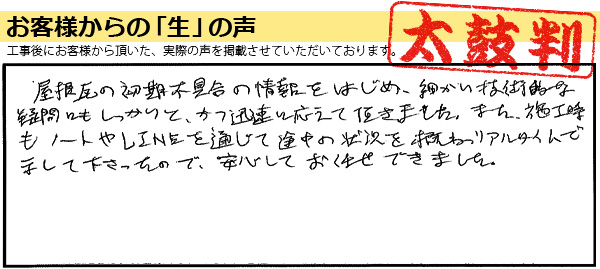 お客様からの「生」の声
太鼓判
工事後にお客様から頂いた、実際の声を掲載させていただいております。
屋根瓦の初期不具合の情報をはじめ、細かい技術的な
疑問にもしっかりと、かつ迅速に応えて頂きました。また、施工時
もノートやLINEを通じて途中の状況を概ねリアルタイムで
示して下さったので、安心しておまかせできました。